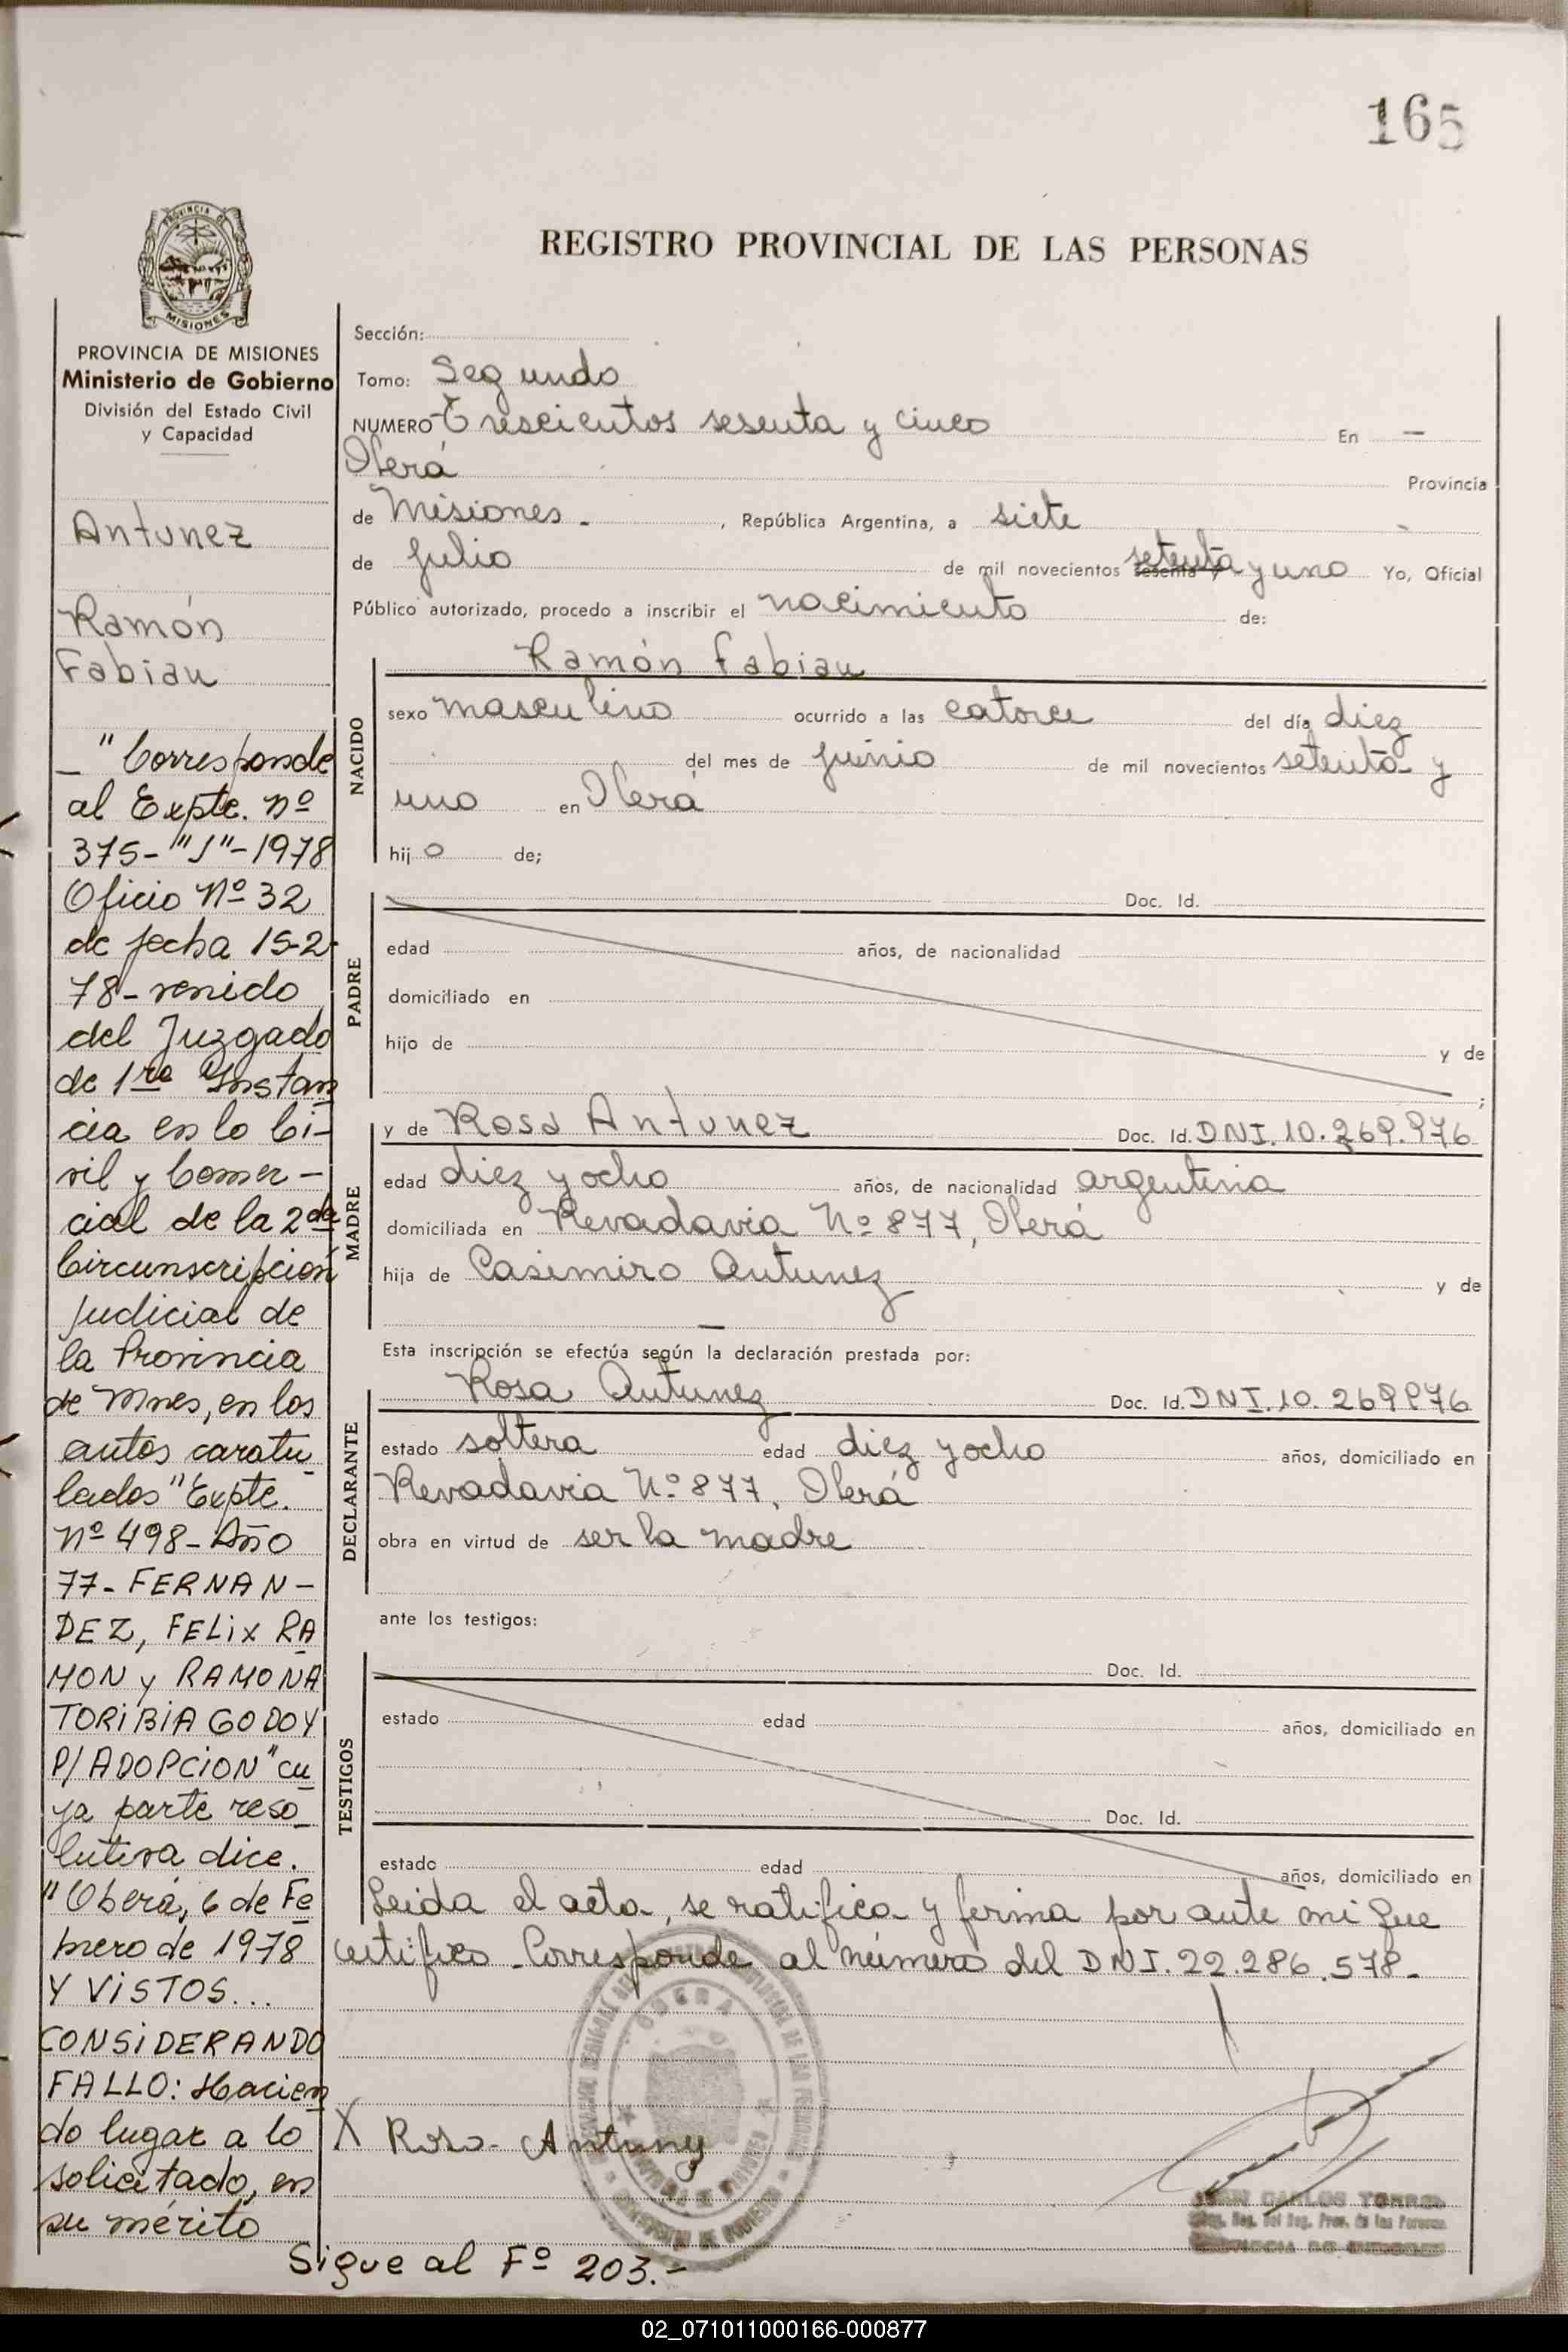 165
PROVINCIA DE
MISIONES
REGISTRO PROVINCIAL DE LAS PERSONAS
PROVINCIA DE MISIONES
Ministerio de Gobierno
División del Estado Civil
y Capacidad
Antunez
Ramón
Fabian
_ "Corresponde
al Expte. Nº
375-"J"-1978
Oficio Nº 32
de fecha 15-2-
78-venido
del Juzgado
de 1ra Instan
cia en lo Ci-
vil y Comer-
cial de la 2da
Circunscripcion
Judicial de
la Provincia
de Mnes, en los
autos caratu
lados "Expte.
Nº 498-Año
77-FERNAN-
DEZ, FELIX RA
MON y RAMONA
TORIBIA GODOY
P/ADOPCION" cu
ya parte reso
lutiva dice.
"Oberá, 6 de Fe
brero de 1978
Y VISTOS...
CONSIDERANDO
FALLO: Hacien
do lugar a lo
solicitado, en
su mérito
Sigue al Fº 203.-
Sección:
Tomo: Segundo
NUMERO Trescientos sesenta y cinco En —
Oberá Provincia
de Misiones. , República Argentina, a siete
de julio de mil novecientos sesenta y setenta y uno Yo, Oficial
Público autorizado, procedo a inscribir el nacimiento de:
NACIDO
Ramón Fabian
sexo masculino ocurrido a las catorce del día diez
del mes de junio de mil novecientos setenta y
uno en Oberá
hijo de;
PADRE
Doc. Id.
edad años, de nacionalidad
domiciliado en
hijo de y de
;
MADRE
y de Rosa Antunez Doc. Id. DNI.10.269.976
edad diez y ocho años, de nacionalidad argentina
domiciliada en Revadavia Nº 877, Oberá
hija de Casimiro Antunez y de
—
Esta inscripción se efectúa según la declaración prestada por:
DECLARANTE
Rosa Antunez Doc. Id. DNI.10.269976
estado soltera edad diez y ocho años, domiciliado en
Revadavia Nº 877, Oberá
obra en virtud de ser la madre
ante los testigos:
TESTIGOS
Doc. Id.
estado edad años, domiciliado en
Doc. Id.
estado edad años, domiciliado en
Leida el acta, se ratifica y firma por ante mi que
certifico. Corresponde al número del DNI.22.286.578-
OBERA
X Rosa Antunez
JUAN CARLOS TORRES
02_071011000166-000877